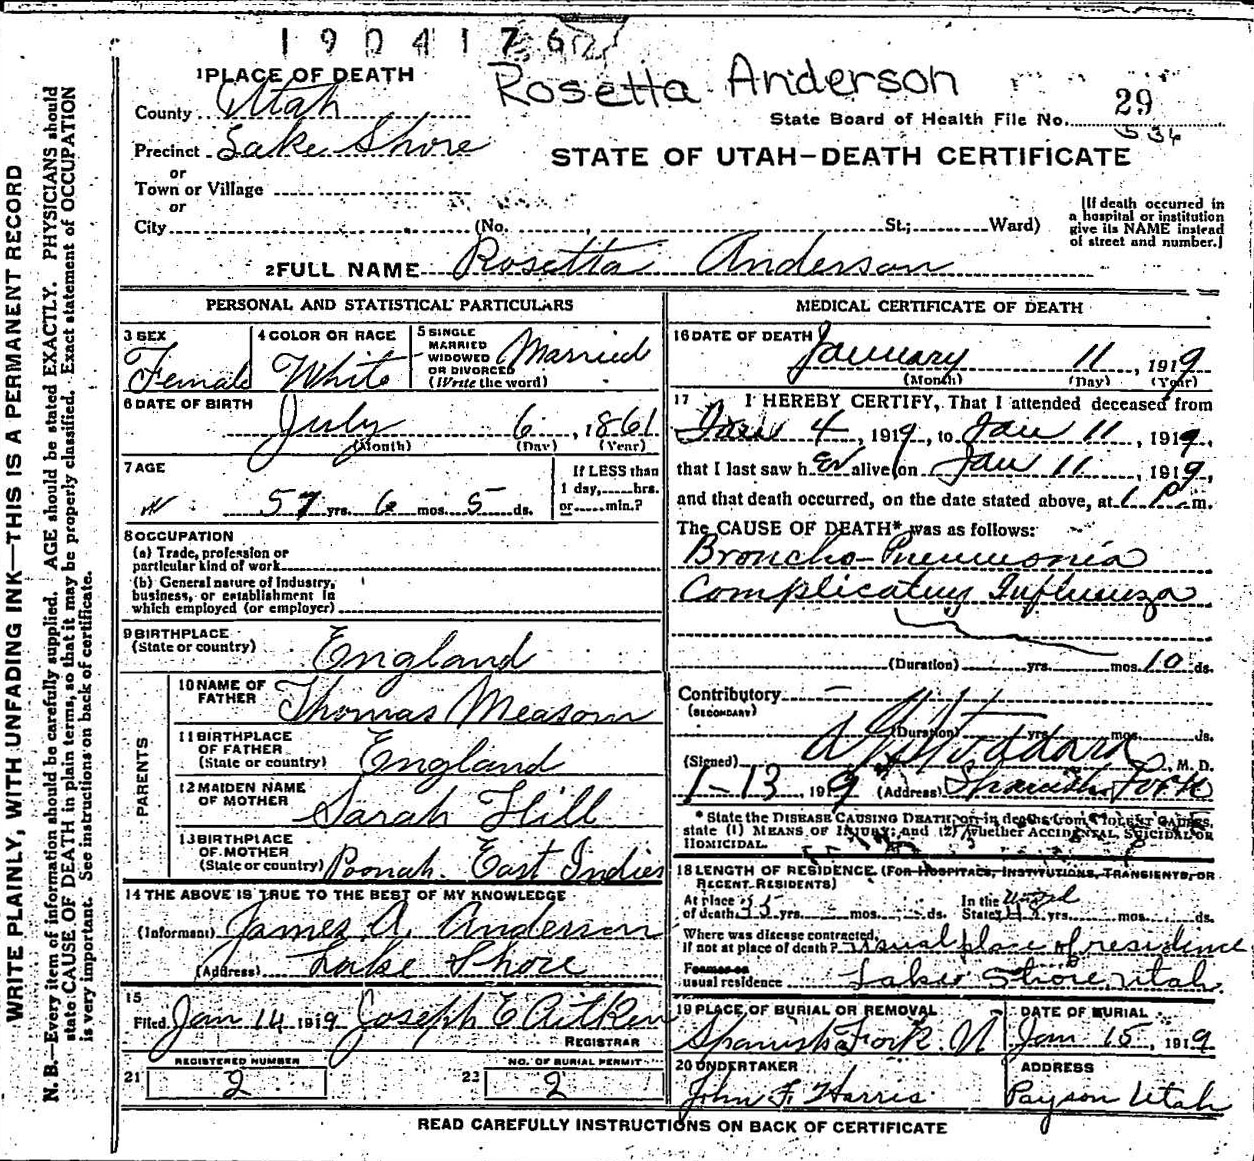 1904176
Rosetta Anderson
1 PLACE OF DEATH
County Utah
Precinct Lake Shore
or
Town or Village
or
City (No. , St.; Ward)
State Board of Health File No. 29
536
STATE OF UTAH—DEATH CERTIFICATE
[If death occurred in
a hospital or institution
give its NAME instead
of street and number.]
2 FULL NAME Rosetta Anderson
PERSONAL AND STATISTICAL PARTICULARS
3 SEX
Female
4 COLOR OR RACE
White
5 SINGLE
MARRIED
WIDOWED
OR DIVORCED
(Write the word)
Married
6 DATE OF BIRTH
July 6, 1861
(Month) (Day) (Year)
7 AGE
57 yrs. 6 mos. 5 ds.
If LESS than
1 day, hrs.
or min.?
8 OCCUPATION
(a) Trade, profession or
particular kind of work
(b) General nature of Industry,
business, or establishment in
which employed (or employer)
9 BIRTHPLACE
(State or country) England
PARENTS
10 NAME OF
FATHER Thomas Measom
11 BIRTHPLACE
OF FATHER
(State or country) England
12 MAIDEN NAME
OF MOTHER Sarah Hill
13 BIRTHPLACE
OF MOTHER
(State or country) Poonah. East Indies
14 THE ABOVE IS TRUE TO THE BEST OF MY KNOWLEDGE
(Informant) James A. Anderson
(Address) Lake Shore
15
Filed Jan 14 1919 Joseph E Aitken
REGISTRAR
REGISTERED NUMBER
21 2
NO. OF BURIAL PERMIT
22 2
MEDICAL CERTIFICATE OF DEATH
16 DATE OF DEATH
January 11, 1919
(Month) (Day) (Year)
17 I HEREBY CERTIFY, That I attended deceased from
Jan 4, 1919, to Jan 11, 1919,
that I last saw her alive on Jan 11, 1919,
and that death occurred, on the date stated above, at 1 P. m.
The CAUSE OF DEATH* was as follows:
Broncho-Pneumonia
Complicating Influenza
(Duration) yrs. mos. 10 ds.
Contributory
(SECONDARY)
(Duration) yrs. mos. ds.
(Signed) Stoddard M. D.
1-13, 1919 (Address) Spanish Fork
* State the DISEASE CAUSING DEATH, or in deaths from VIOLENT CAUSES,
state (1) MEANS OF INJURY; and (2) whether ACCIDENTAL, SUICIDAL OR
HOMICIDAL.
18 LENGTH OF RESIDENCE (FOR HOSPITALS, INSTITUTIONS, TRANSIENTS, OR
RECENT RESIDENTS)
At place
of death yrs. mos. ds.
In the
State yrs. mos. ds.
Where was disease contracted,
if not at place of death? usual place of residence
Former or
usual residence Lake Shore, Utah.
19 PLACE OF BURIAL OR REMOVAL
Spanish Fork. U
DATE OF BURIAL
Jan 15, 1919
20 UNDERTAKER
John F. Harris
ADDRESS
Payson Utah
READ CAREFULLY INSTRUCTIONS ON BACK OF CERTIFICATE
WRITE PLAINLY, WITH UNFADING INK—THIS IS A PERMANENT RECORD
N. B.—Every item of information should be carefully supplied. AGE should be stated EXACTLY. PHYSICIANS should
state CAUSE OF DEATH in plain terms, so that it may be properly classified. Exact statement of OCCUPATION
is very important. See instructions on back of certificate.